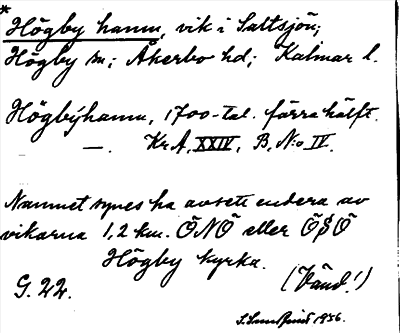 *
Högby hamn, vik i Saltsjön;
Högby sn; Åkerbo hd; Kalmar l.
Högbÿhamn, 1700-tal. förra hälft.
—. Kr.A, XXIV, B, N:o IV.
Namnet synes ha avsett endera av
vikarna 1,2 km. ÖNÖ eller ÖSÖ
Högby kyrka.
G. 22.
(Vänd!)
1936.